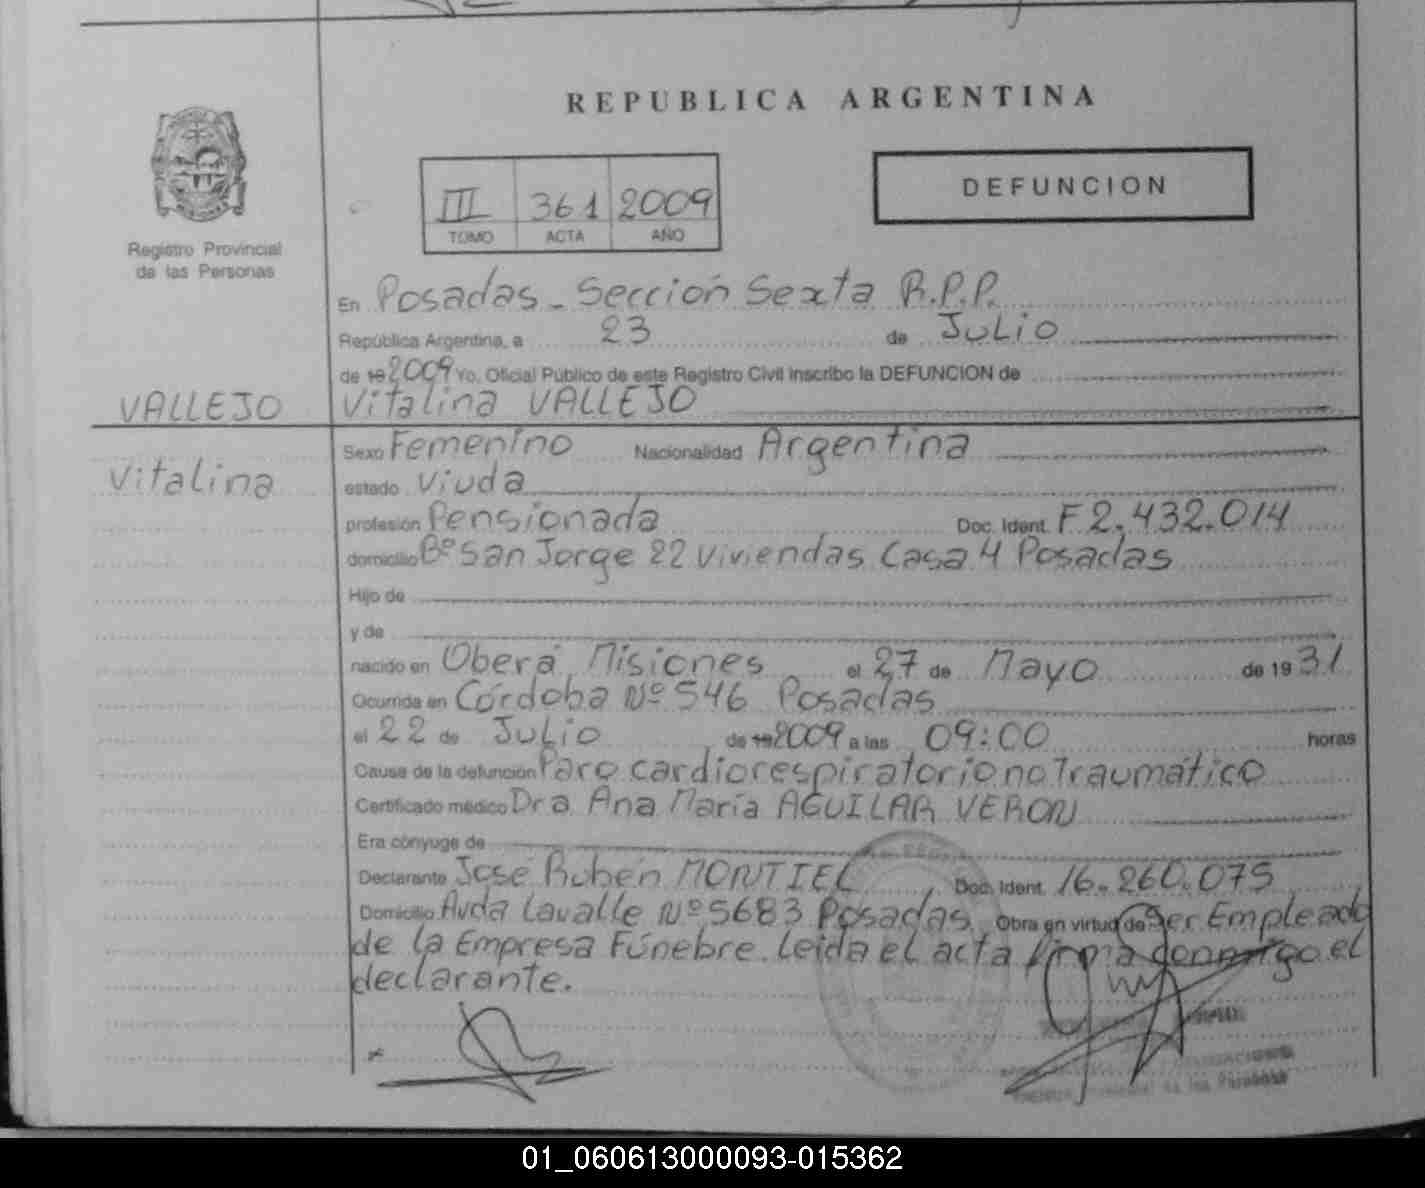 REPUBLICA ARGENTINA
III 361 2009
TOMO ACTA AÑO
DEFUNCION
Registro Provincial
de las Personas
En Posadas - Sección Sexta R.P.P.
República Argentina, a 23 de Julio
de 19 2009 Yo, Oficial Público de este Registro Civil inscribo la DEFUNCION de
VALLEJO
Vitalina VALLEJO
Vitalina
Sexo Femenino Nacionalidad Argentina
estado Viuda
profesión Pensionada Doc. Ident. F 2.432.014
domicilio Bº San Jorge 22 Viviendas Casa 4 Posadas
Hijo de
y de
nacido en Oberá Misiones el 27 de Mayo de 19 31
Ocurrida en Córdoba Nº 546 Posadas
el 22 de Julio de 19 2009 a las 09:00 horas
Causa de la defunción Paro cardiorespiratorio no Traumático
Certificado médico Dra Ana María AGUILAR VERON
Era cónyuge de
Declarante José Rubén MONTIEL Doc. Ident. 16.260.075
Domicilio Avda Lavalle Nº 5683 Posadas Obra en virtud de Ser Empleado
de la Empresa Fúnebre. Leída el acta firma conmigo el
declarante.
de las Personas
01_060613000093-015362